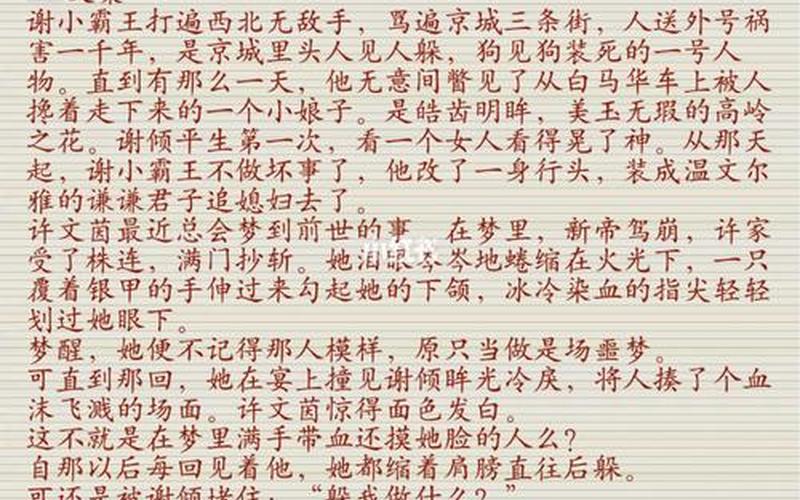 谢小霸王打遍西北无敌手，骂遍京城三条街，人送外号祸
害一千年，是京城里头人见人躲，狗见狗装死的一号人
物。直到有那么一天，他无意间瞥见了从白马华车上被人
搀着走下来的一个小娘子。是皓齿明眸，美玉无瑕的高岭
之花。谢倾平生第一次，看一个女人看得晃了神。从那天
起，谢小霸王不做坏事了，他改了一身行头，装成温文尔
雅的谦谦君子追媳妇去了。
许文茵最近总会梦到前世的事。在梦里，新帝驾崩，许家
受了株连，满门抄斩。她泪眼岑岑地蜷缩在火光下，一只
覆着银甲的手伸过来勾起她的下颌，冰冷染血的指尖轻轻
划过她眼下。
梦醒，她便不记得那人模样，原只当做是场噩梦。
可直到那回，她在宴上撞见谢倾眸光冷戾，将人揍了个血
沫飞溅的场面。许文茵惊得面色发白。
这不就是在梦里满手带血还摸她脸的人么？
自那以后每回见着他，她都缩着肩膀直往后躲。
可还是被谢倾堵住：“躲我做什么？”
小红书